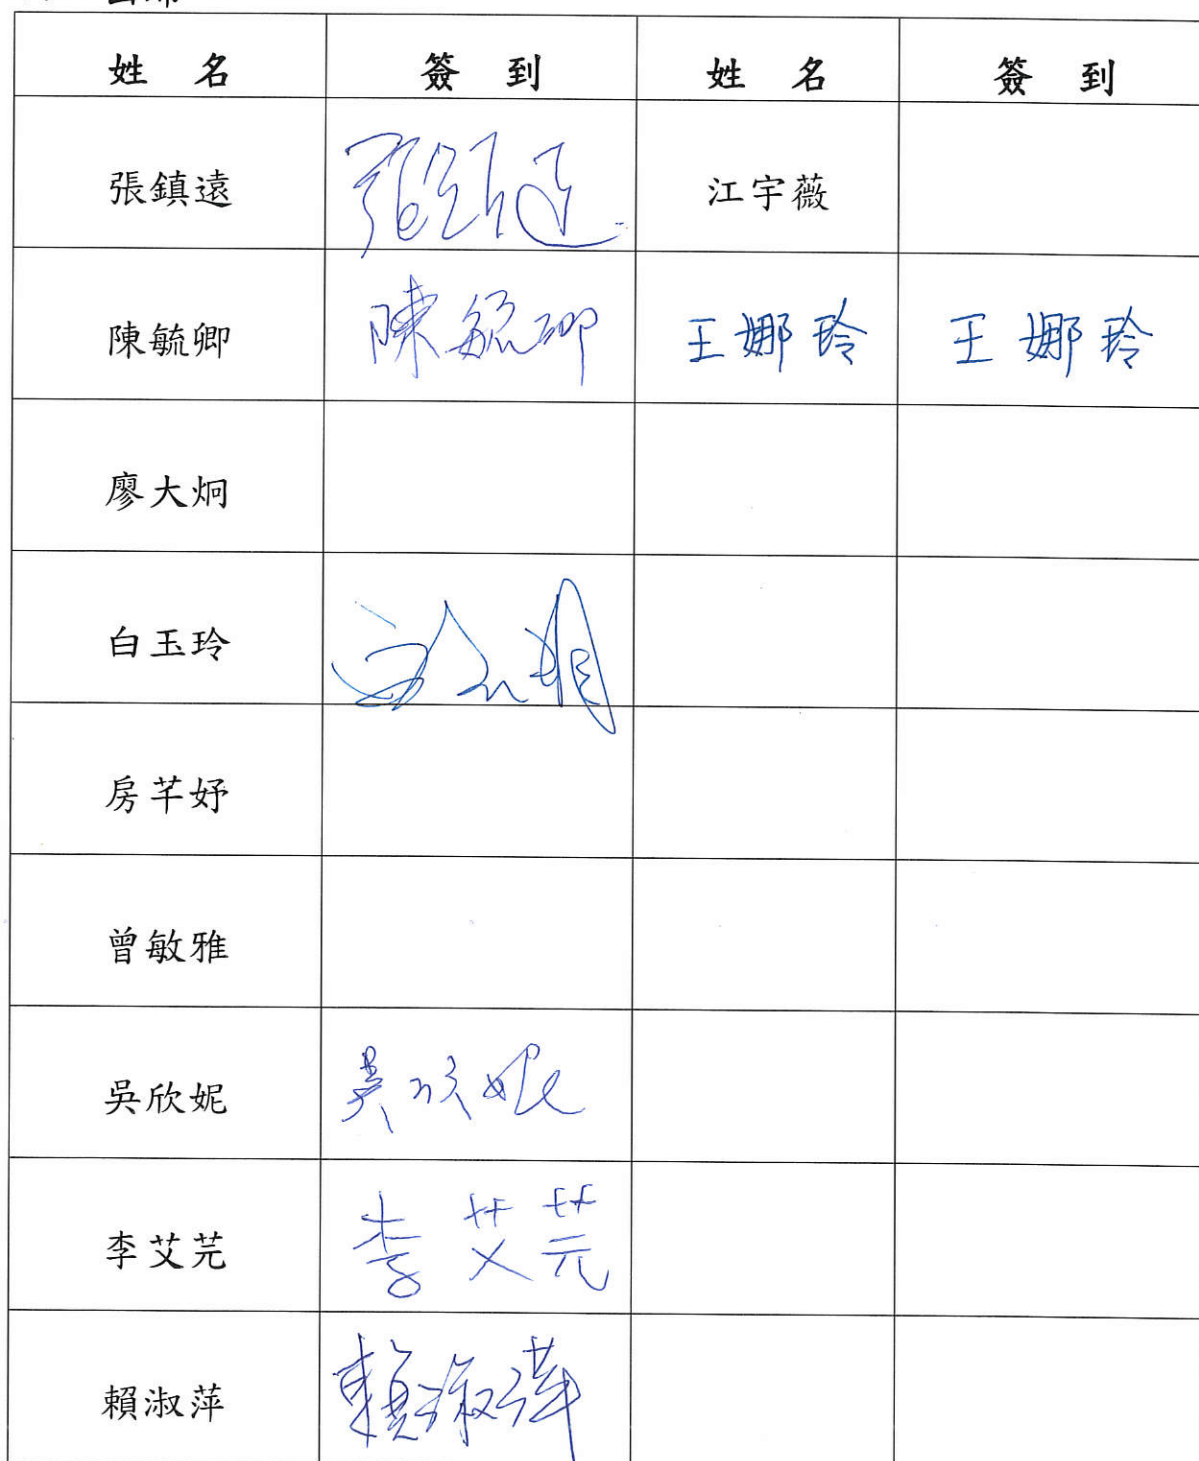 姓 名 簽 到 姓 名 簽 到
張鎮遠 張鎮遠 江宇薇
陳毓卿 陳毓卿 王娜玲 王娜玲
廖大炯
白玉玲
房芊妤
曾敏雅
吳欣妮 吳欣妮
李艾芫 李艾芫
賴淑萍 賴淑萍